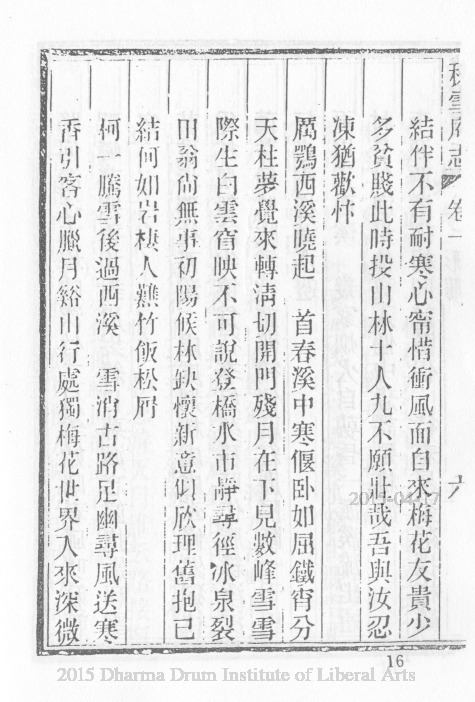 秋雪庵志 卷二 六
結伴不有耐寒心甯惜衝風面自來梅花友貴少
多貧賤此時投山林十人九不願壯哉吾與汝忍
凍猶歡忭
厲鶚西溪曉起 首春溪中寒偃卧如屈鐵宵分
天柱夢覺來轉淸切開門殘月在下見數峰雪雪
際生白雲窅映不可說登橋水市靜尋徑冰泉裂
田翁尙無事初陽候林缺懷新意似欣理舊抱已
結何如岩棲人難竹飯松屑
何一騰雪後過西溪 雪消古路足幽尋風送寒
香引客心臘月谿山行處獨梅花世界入來深微
16
2015 Dharma Drum Institute of Liberal Arts